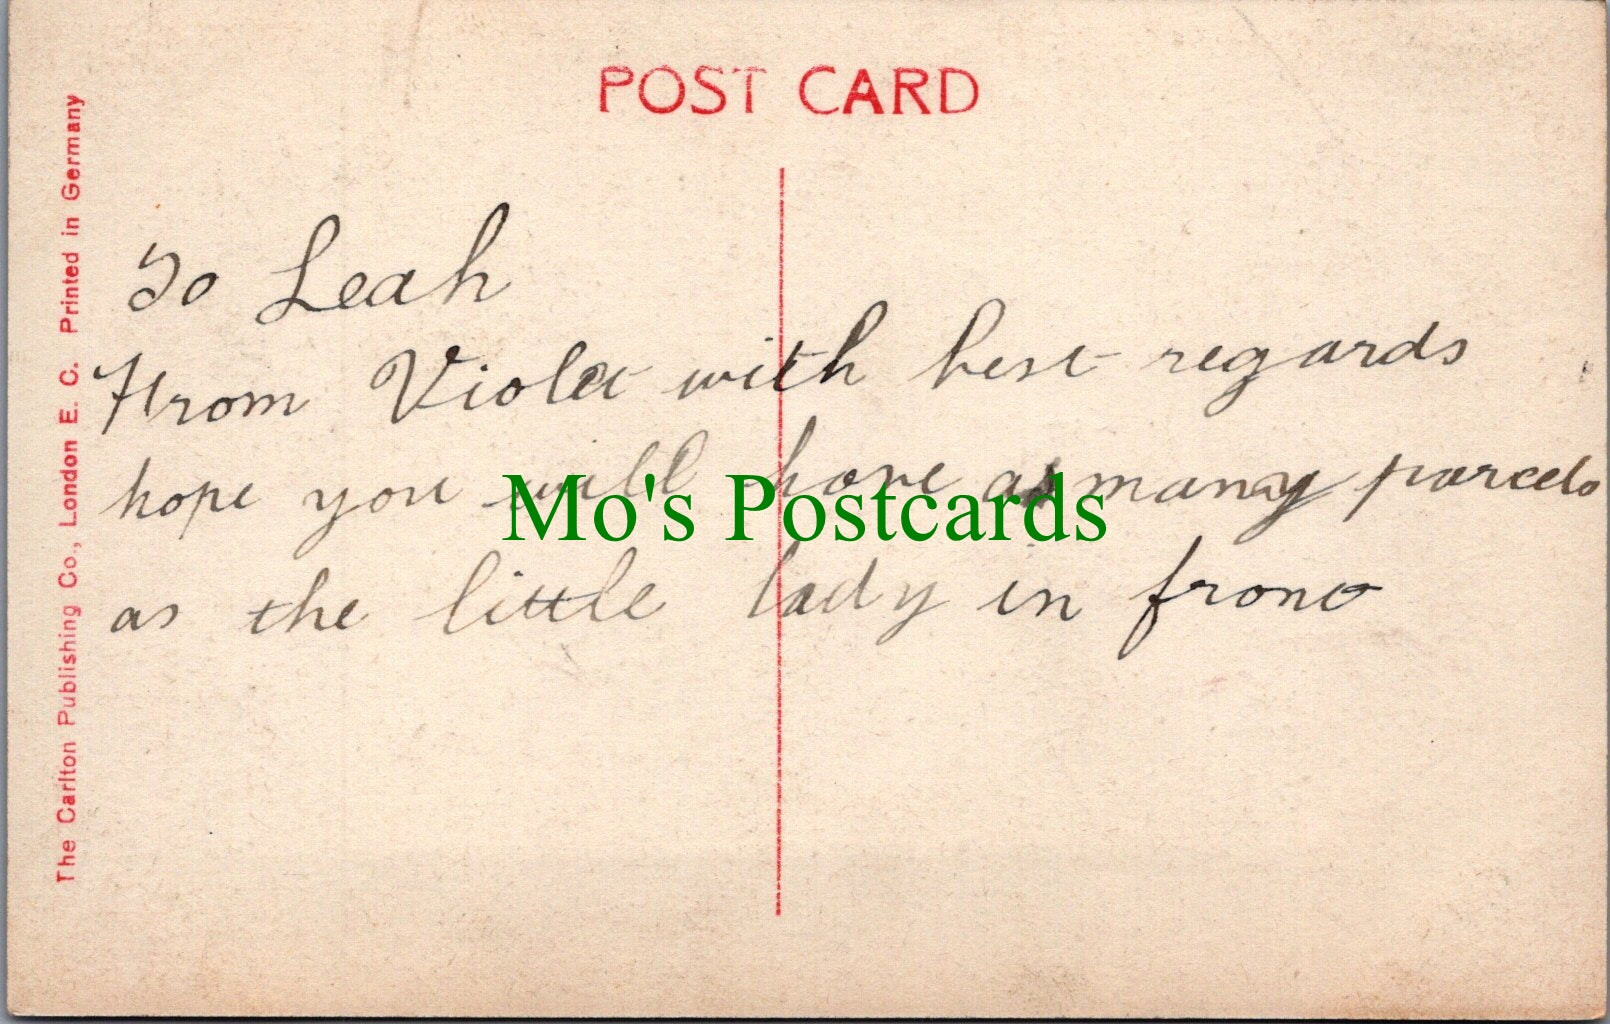 POST CARD
The Carlton Publishing Co., London E. C. Printed in Germany
To Leah
From Violet with best regards
hope you will have as many parcels
as the little lady in front
Mo's Postcards